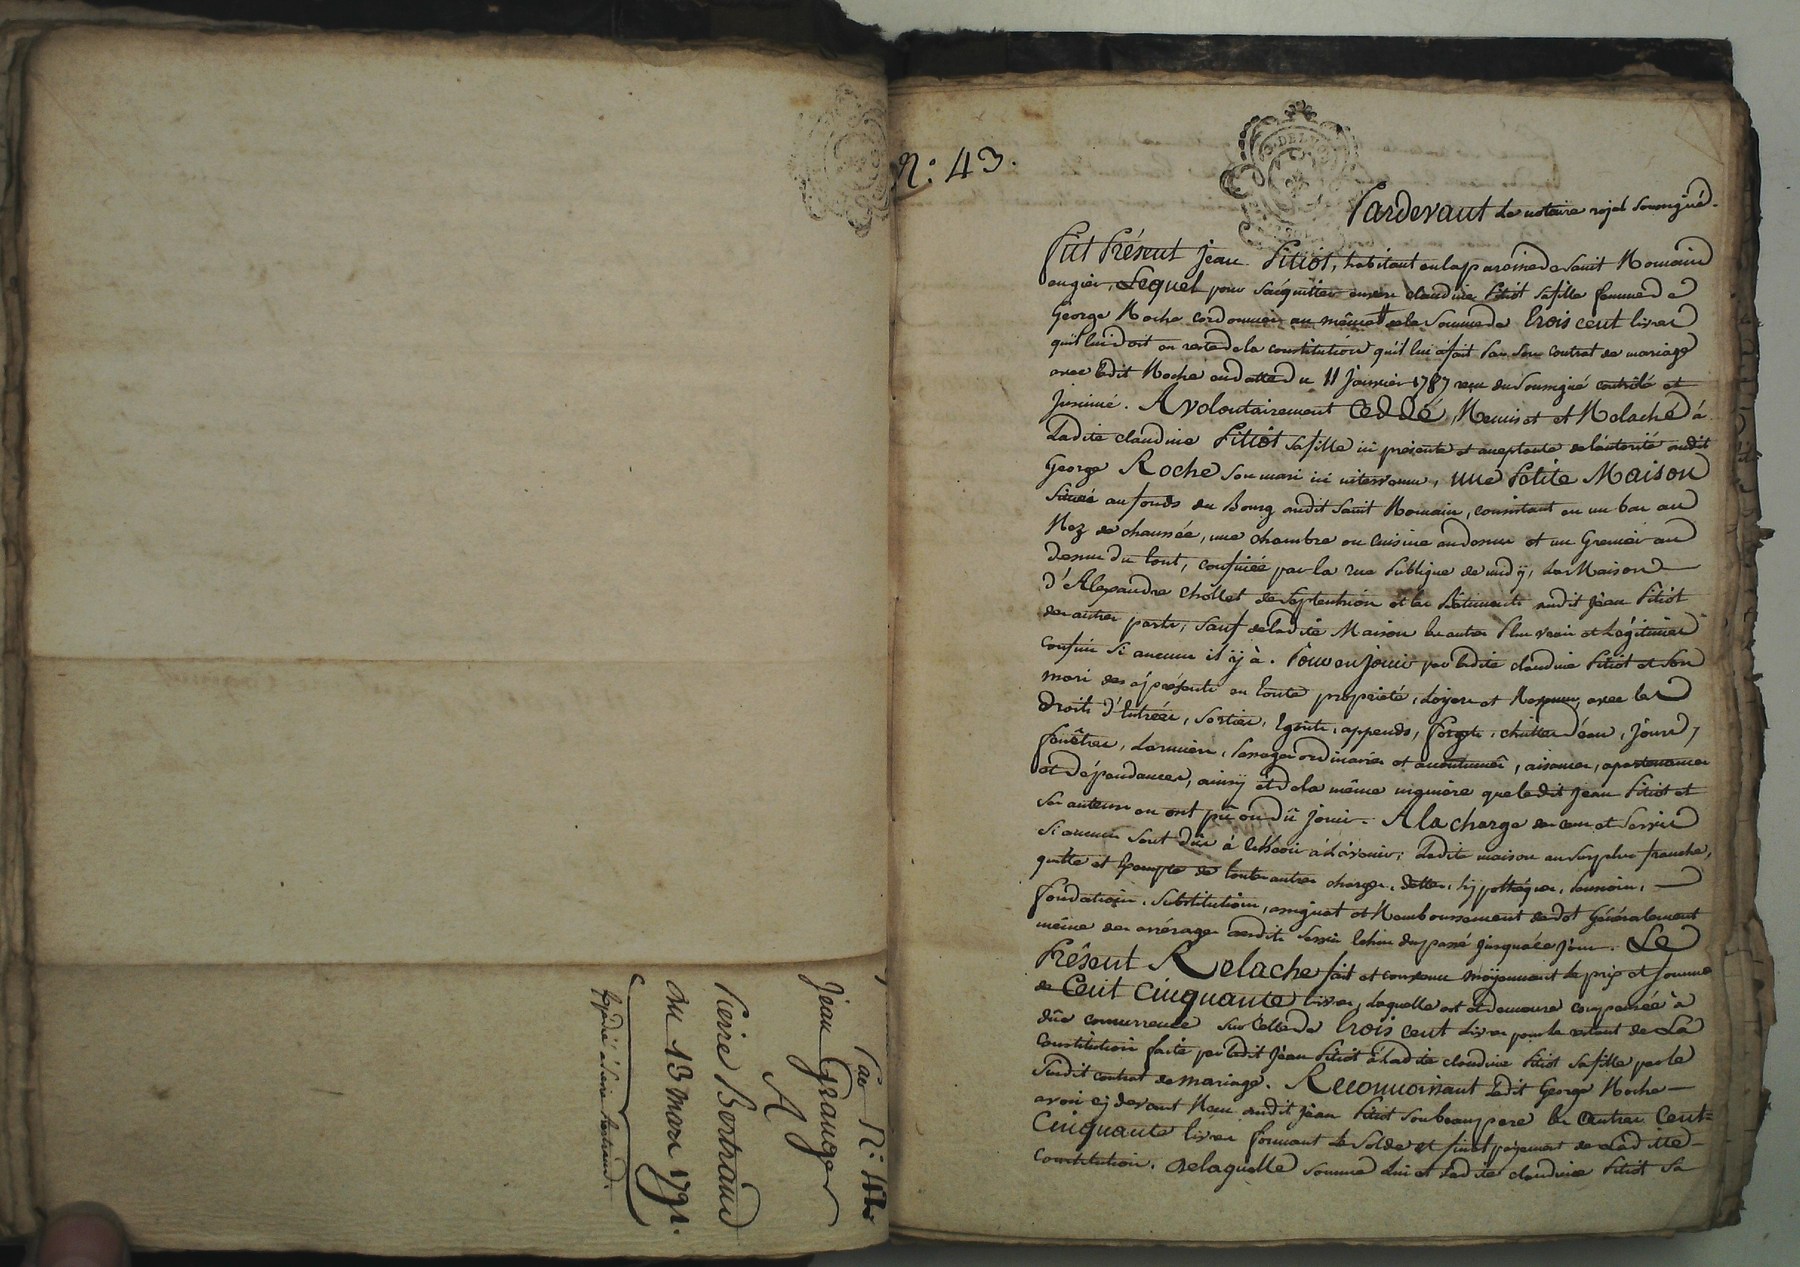 Par N.°
Jean Granger
A
Pierre Bertraud
du 13 mars 1791.
Expédié à Pierre Bertraud.
N.° 43.
Pardevant Le notaire royal soussigné.
Fut Présent Jean Pitiot, habitant en la paroisse de Saint Romain
en gier, Lequel pour s'acquitter envers claudine Pitiot sa fille femme de
George Roche cordonnier au même de la Somme de trois cent livres
qu'il lui doit en reste de la constitution qu'il lui a fait par son contrat de mariage
avec ledit Roche en datte du 11 Janvier 1787 reçu du soussigné controlé et
Insinué. A volontairement Ceddé, Remis et et Relaché à
Ladite claudine Pitiot sa fille ici présente et acceptante de l'autorité dudit
George Roche son mari ici intervenu, une Petite Maison
Située au fonds du Bourg dudit Saint Romain, consistant en un bas au
Rez de chaussée, une chambre ou cuisine au dessus et un Grenier au
dessus du tout, confinée par la rue Publique de midy, La Maison
d'Alexandre Chollet de septentrion et les Bâtiments dudit Jean Pitiot
des autres parts, sauf de ladite Maison les autres Plus vrais et Légitimes
confins si aucuns il y à. Pour en jouir par ladite claudine Pitiot et son
mari des à présent en toute propriété, avec les
droits d'Entrées, sorties, Egouts, appends, forgets, chuttes d'eau, Jours,
fenêtres, Larmiers, Passages ordinaires et accoutumés, aisances, apartenances
et dépendances, ainsy et de la même manière que ledit Jean Pitiot et
ses auteurs en ont pû ou dû jouir. A la charge des cens et servis
si aucuns sont dûs à l'avenir; Ladite maison au surplus franche,
quitte et Exempte de toutes autres charges, dettes, hypothèques, Pensions,
fondations, substitutions, assignat et Remboursement de dot Généralement
même des arrérages desdits servis Echus du passé jusqu'à ce jour. Le
Présent Relache fait et convenu moyennant le prix et somme
de Cent Cinquante livres, Laquelle est et demeure compensée à
dûe concurrence sur celle de trois cent Livres pour le restant de La
Constitution faite par ledit Jean Pitiot à Ladite claudine Pitiot sa fille par le
susdit contrat de mariage. Reconnoissant Ledit George Roche
avoir cy devant Reçu dudit Jean Pitiot son beau pere les autres Cent
Cinquante livres formant le solde et final payement de Laditte
Constitution. De laquelle somme Lui et Ladite claudine Pitiot Sa